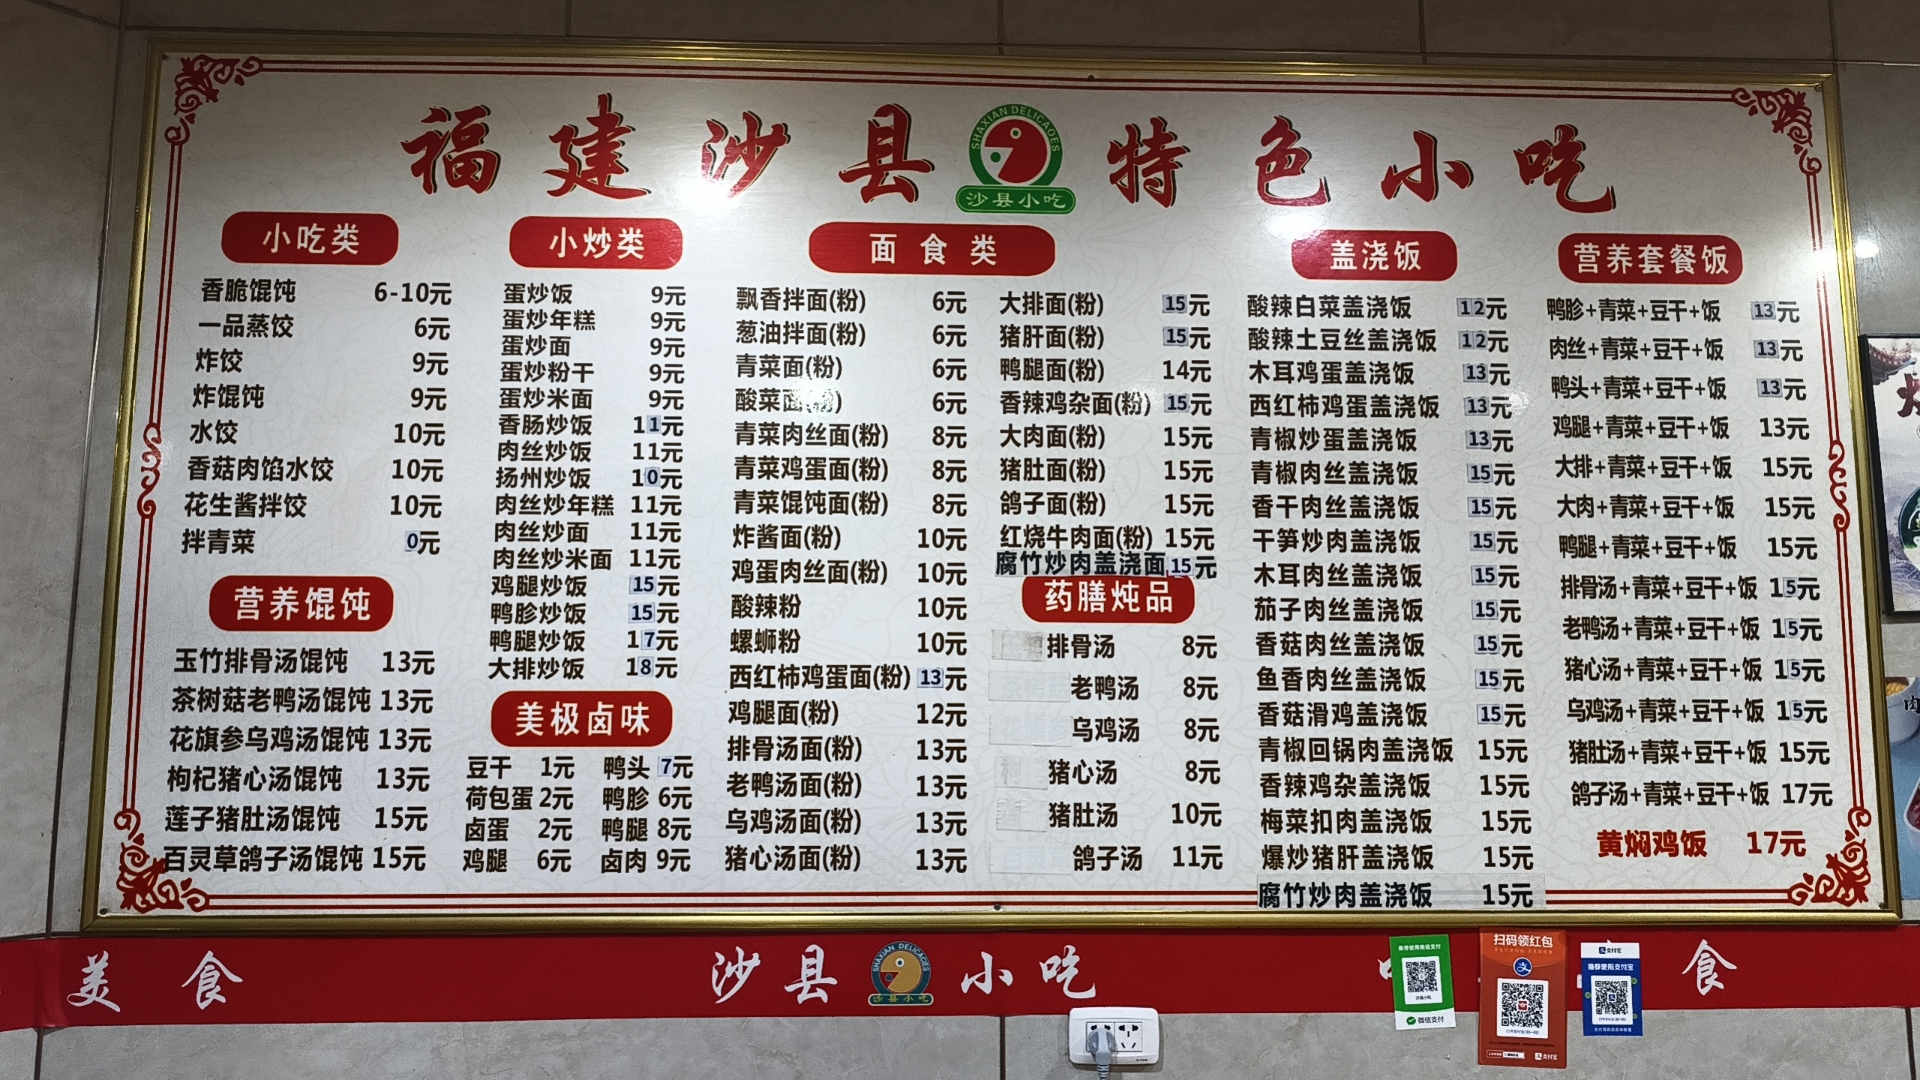 福建沙县 特色小吃
SHAXIAN DELICADES
沙县小吃
小吃类
香脆馄饨 6-10元
一品蒸饺 6元
炸饺 9元
炸馄饨 9元
水饺 10元
香菇肉馅水饺 10元
花生酱拌饺 10元
拌青菜 0元
营养馄饨
玉竹排骨汤馄饨 13元
茶树菇老鸭汤馄饨 13元
花旗参乌鸡汤馄饨 13元
枸杞猪心汤馄饨 13元
莲子猪肚汤馄饨 15元
百灵草鸽子汤馄饨 15元
小炒类
蛋炒饭 9元
蛋炒年糕 9元
蛋炒面 9元
蛋炒粉干 9元
蛋炒米面 9元
香肠炒饭 11元
肉丝炒饭 11元
扬州炒饭 10元
肉丝炒年糕 11元
肉丝炒面 11元
肉丝炒米面 11元
鸡腿炒饭 15元
鸭胗炒饭 15元
鸭腿炒饭 17元
大排炒饭 18元
美极卤味
豆干 1元 鸭头 7元
荷包蛋 2元 鸭胗 6元
卤蛋 2元 鸭腿 8元
鸡腿 6元 卤肉 9元
面食类
飘香拌面(粉) 6元
葱油拌面(粉) 6元
青菜面(粉) 6元
酸菜面(粉) 6元
青菜肉丝面(粉) 8元
青菜鸡蛋面(粉) 8元
青菜馄饨面(粉) 8元
炸酱面(粉) 10元
鸡蛋肉丝面(粉) 10元
酸辣粉 10元
螺蛳粉 10元
西红柿鸡蛋面(粉) 13元
鸡腿面(粉) 12元
排骨汤面(粉) 13元
老鸭汤面(粉) 13元
乌鸡汤面(粉) 13元
猪心汤面(粉) 13元
大排面(粉) 15元
猪肝面(粉) 15元
鸭腿面(粉) 14元
香辣鸡杂面(粉) 15元
大肉面(粉) 15元
猪肚面(粉) 15元
鸽子面(粉) 15元
红烧牛肉面(粉) 15元
腐竹炒肉盖浇面 15元
药膳炖品
排骨汤 8元
老鸭汤 8元
乌鸡汤 8元
猪心汤 8元
猪肚汤 10元
鸽子汤 11元
盖浇饭
酸辣白菜盖浇饭 12元
酸辣土豆丝盖浇饭 12元
木耳鸡蛋盖浇饭 13元
西红柿鸡蛋盖浇饭 13元
青椒炒蛋盖浇饭 13元
青椒肉丝盖浇饭 15元
香干肉丝盖浇饭 15元
干笋炒肉盖浇饭 15元
木耳肉丝盖浇饭 15元
茄子肉丝盖浇饭 15元
香菇肉丝盖浇饭 15元
鱼香肉丝盖浇饭 15元
香菇滑鸡盖浇饭 15元
青椒回锅肉盖浇饭 15元
香辣鸡杂盖浇饭 15元
梅菜扣肉盖浇饭 15元
爆炒猪肝盖浇饭 15元
腐竹炒肉盖浇饭 15元
营养套餐饭
鸭胗+青菜+豆干+饭 13元
肉丝+青菜+豆干+饭 13元
鸭头+青菜+豆干+饭 13元
鸡腿+青菜+豆干+饭 13元
大排+青菜+豆干+饭 15元
大肉+青菜+豆干+饭 15元
鸭腿+青菜+豆干+饭 15元
排骨汤+青菜+豆干+饭 15元
老鸭汤+青菜+豆干+饭 15元
猪心汤+青菜+豆干+饭 15元
乌鸡汤+青菜+豆干+饭 15元
猪肚汤+青菜+豆干+饭 15元
鸽子汤+青菜+豆干+饭 17元
黄焖鸡饭 17元
美食
沙县 小吃
SHAXIAN DELICADES
沙县小吃
食
推荐使用微信支付
微信支付
扫码领红包
支付宝
支付宝
推荐使用支付宝